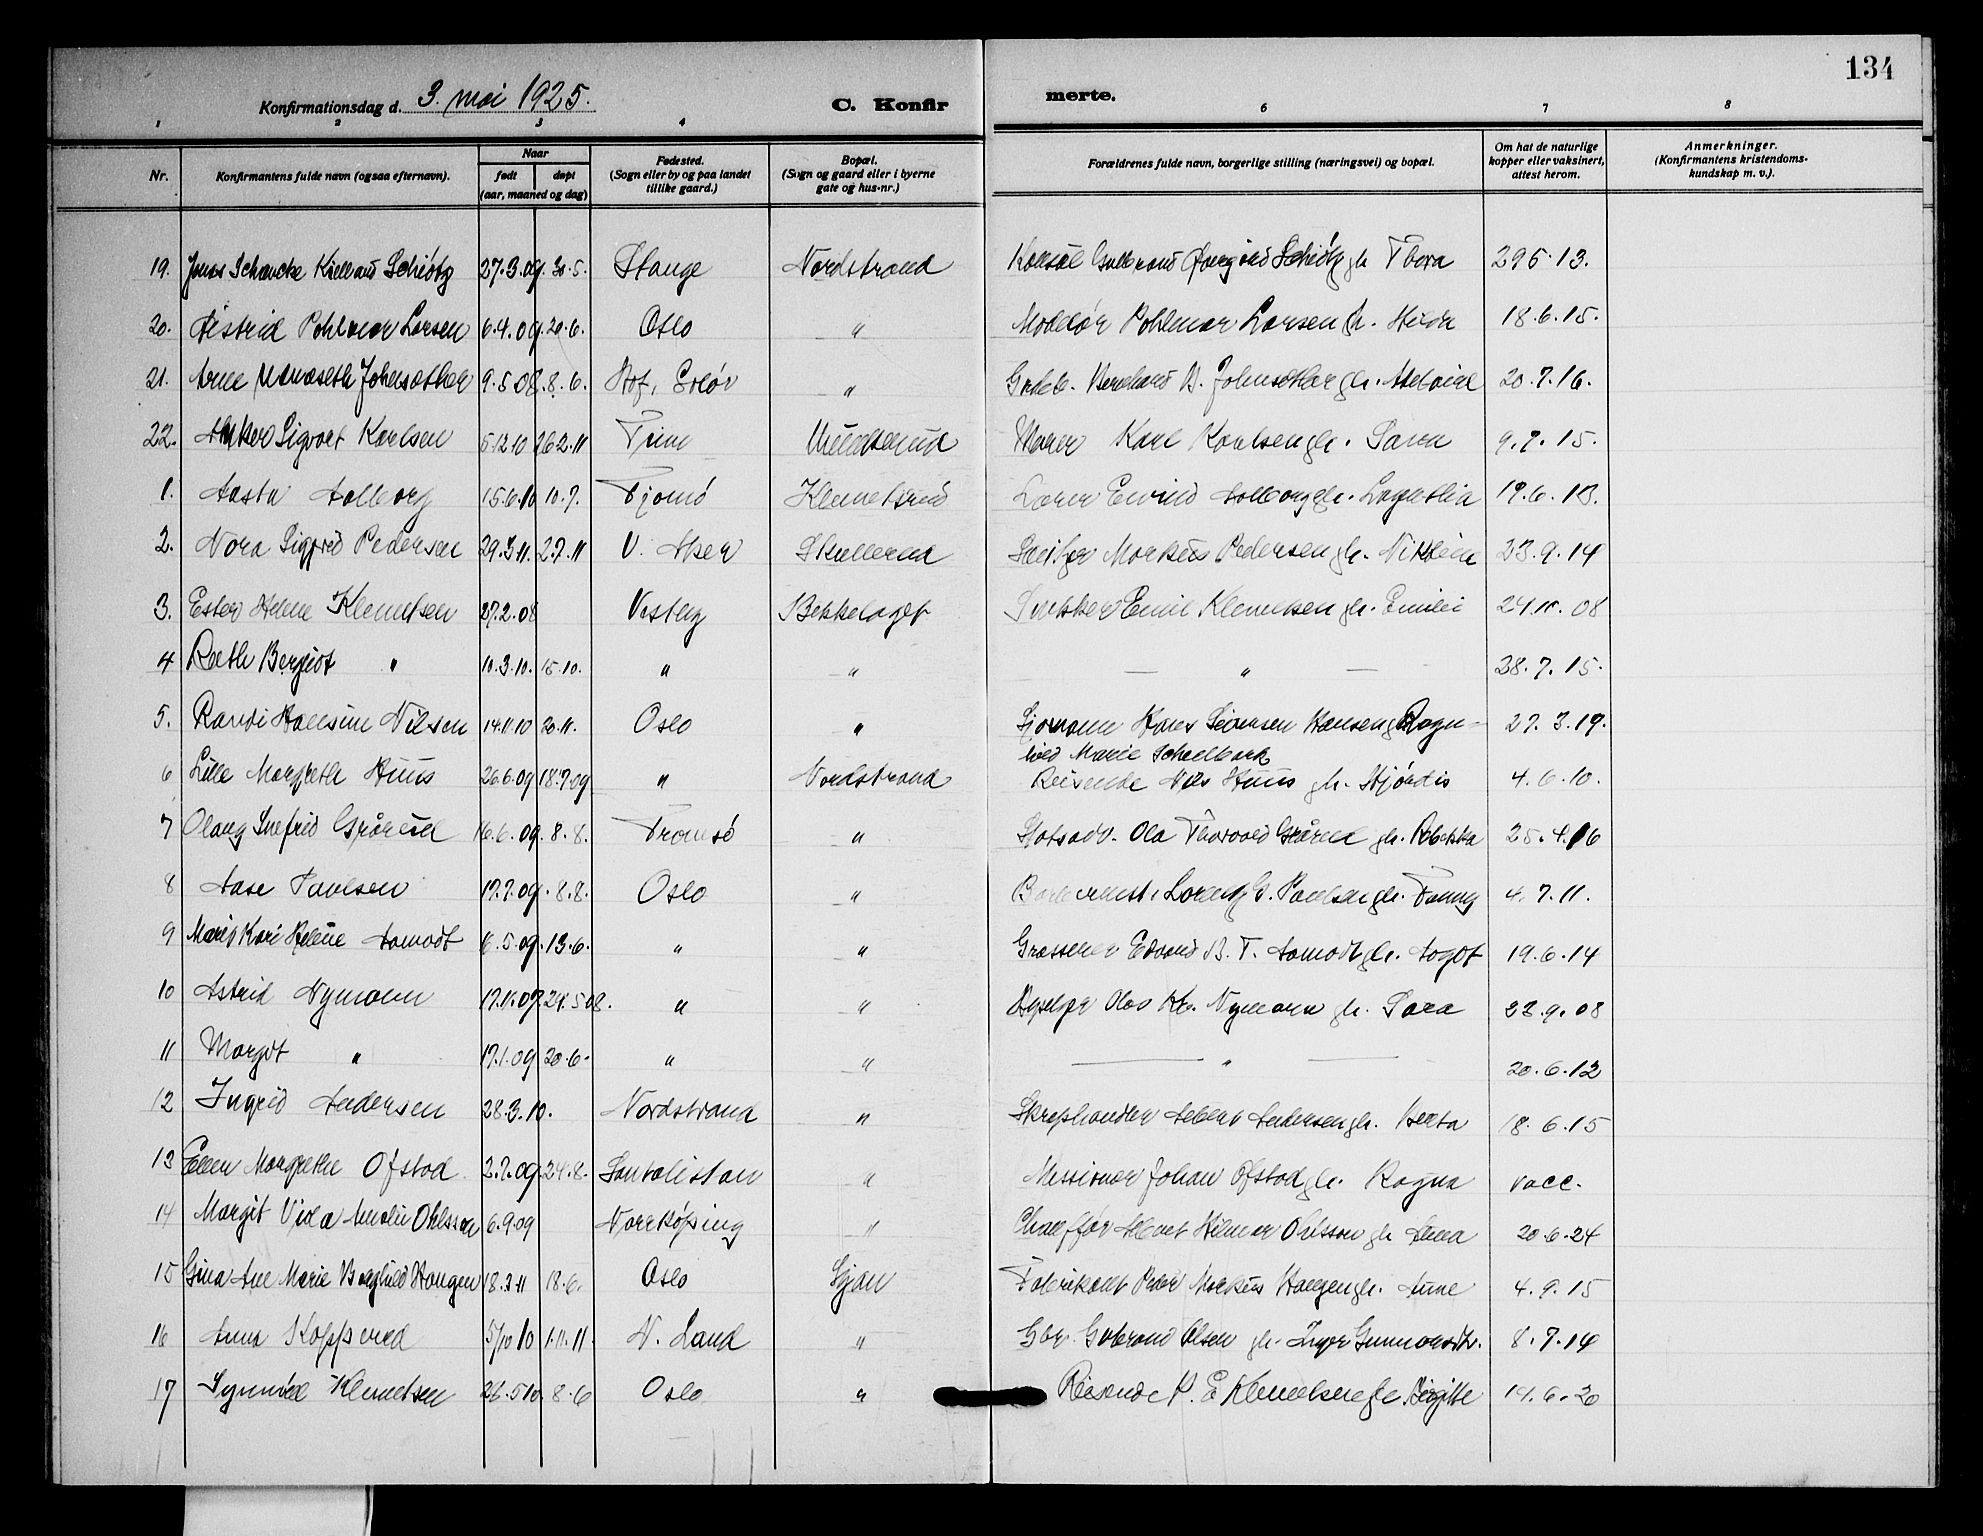 134
Konfirmationsdag d. 3. mai 1925. C. Konfir merte.
1 2 3 4 6 7 8
Nr. Konfirmantens fulde navn (ogsaa efternavn). Naar født døpt (aar, maaned og dag) Fødested. (Sogn eller by og paa landet tillike gaard.) Bopæl. (Sogn og gaard eller i byerne gate og hus-nr.) Forældrenes fulde navn, borgerlige stilling (næringsvei) og bopæl. Om hat de naturlige kopper eller vaksinert, attest herom. Anmerkninger. (Konfirmantens kristendoms- kundskap m. v.).
19. Jonas Schancke Kielland Schiötz 27.3.09. 30.5. Stange Nordstrand Konsul Schiötz gh Thora 295.13.
20. Astrid Pohlmar Larsen 6.4.09. 20.6. Oslo " Pohlmar Larsen 18.6.15.
21. Arne Johnsæther 9.5.08. 8.6. Hof, Solör " Bernhard Johnsæther gh. 20.7.16.
22. Sigvart Karlsen 5.12.10 26.2.11 Time Munkerud Maler Karl Karlsen gh. Sara 9.7.15.
1. Aasta Aalborg 15.6.10 10.7. Tjømö Klemetsrud Lærer Eivind Aalborg gh. 19.6.13.
2. Nora Sigfrid Pedersen 29.3.11. 2.7.11 V. Aker Skullerud Markus Pedersen gh. 23.9.14
3. Ester Helene Klemetsen 27.2.08 Vestby Bekkelaget Snekker Emil Klemetsen gh. Emilie 24.10.08
4 Ruth Bergliot " 10.3.10. 15.10. " " — " — 28.7.15.
5. Randi Hansine Nilsen 14.11.10 20.11. Oslo " Sjömann Hans Hansen g Ragn- 27.3.19.
hild Marie
6 Lille Margrethe Huus 26.6.09 18.7.09 " Nordstrand Reisende Nils Huus gh. Hjördis 4.6.10.
7 Olaug Snefrid Gråvud 16.6.09. 8.8. Tromsö " Ola Thorvald gh. Rebekka 25.4.16
8 Aase Paulsen 17.7.09. 8.8. Oslo " Lorentz Paulsen gh. Fanny 4.7.11.
9 Kari Helene Aamodt 6.5.09. 13.6. " " Grosserer Edvard B. T. Aamodt gh. Aagot 19.6.14
10 Astrid Nymann 17.11.07. 24.5.08. " " Olav Kr. Nymann gh. Sara 23.9.08
11 Margot " 17.1.09 20.6. " " — " — 20.6.12
12 Ingrid Andersen 28.3.10. Nordstrand " Skraphandler Albert Andersen gh. Berta 18.6.15
13 Ellen Margrethe Ofstad 2.7.09. 24.8. Santalistan " Missionær Johan Ofstad gh. Ragna vacc.
14 Margit Viola Amalie Ohlsson 6.9.09 Norrköping " Chaufför Hilmar Ohlsson gh Anna 20.6.24
15 Gina Ane Marie Borghild Haugen 18.3.11 18.6. Oslo Ljan Fabrikant Peder Markus Haugen gh. Anne 4.9.15
16 Anna Kopperud 5/10 10 1.11.11. N. Land " Gbr. Gulbrand Olsen gh. Inger Gunmundsdt. 8.7.14
17 Synnöve Klemetsen 26.5.10. 8.6 Oslo " Reisende P. E Klemetsen gh. Birgitte 14.6.20